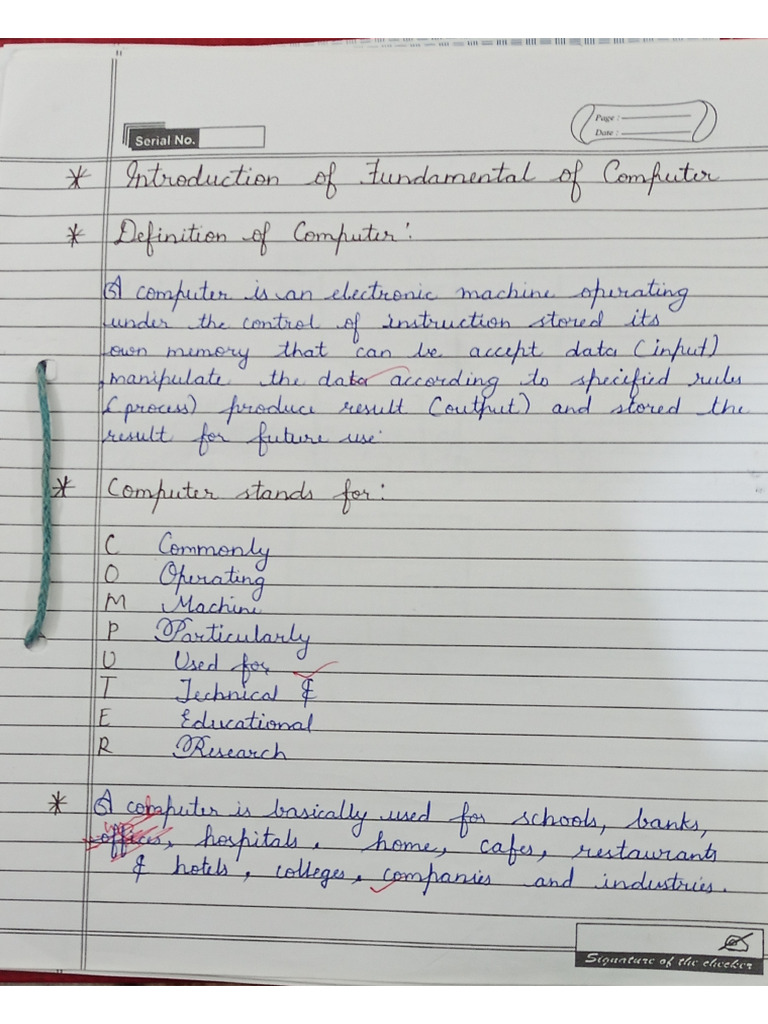 Serial No.
Page :
Date :
* Introduction of Fundamental of Computer
* Definition of Computer :
A computer is an electronic machine operating
under the control of instruction stored its
own memory that can be accept data (input)
manipulate the data according to specified rules
(process) produce result (output) and stored the
result for future use.
* Computer stands for :
C Commonly
O Operating
M Machine
P Particularly
U Used for
T Technical &
E Educational
R Research
* A computer is basically used for schools, banks,
offices, hospitals, home, cafes, restaurants
& hotels, colleges, companies and industries.
Signature of the checker